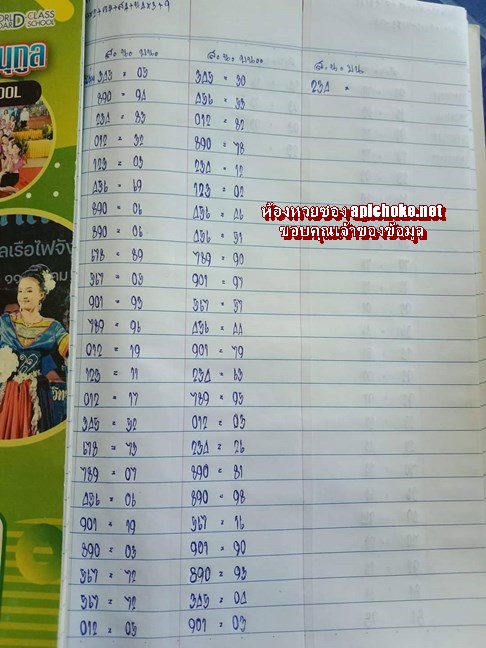 WORLD-CLASS
STANDARD SCHOOL
นุกูล
OOL
ลเรือไฟจัง
345 = 05 345 = 30 234 =
890 = 94 456 = 53
234 = 83 012 = 82
012 = 32 890 = 78
123 = 03 234 = 12
456 = 69 123 = 02
890 = 06 456 = 46
890 = 06 456 = 51
678 = 89 789 = 90
567 = 03 901 = 97
901 = 93 567 = 57
789 = 96 456 = 44
012 = 19 901 = 79
123 = 71 234 = 63
012 = 17 789 = 95
345 = 52 012 = 05
678 = 73 234 = 26
789 = 07 890 = 81
456 = 06 890 = 98
901 = 19 567 = 16
890 = 03 901 = 90
567 = 72 890 = 93
567 = 72 345 = 04
012 = 05 901 = 03
ห้องหวยซอง apichoke.net
ขอบคุณเจ้าของข้อมูล